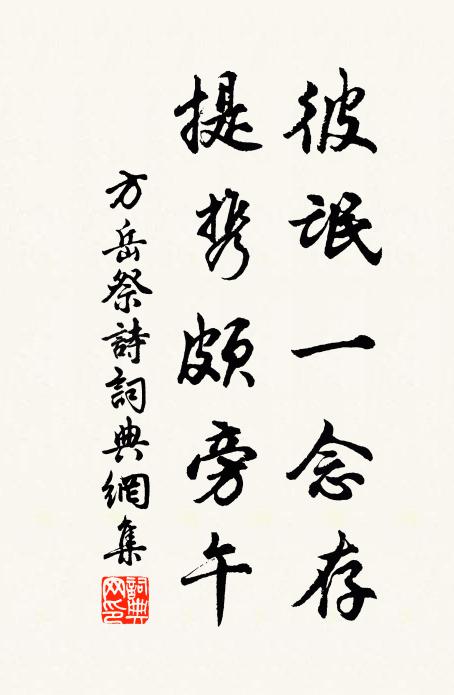 彼氓一念存
提携頗旁午
方岳祭詩詞典網集
詞典網印